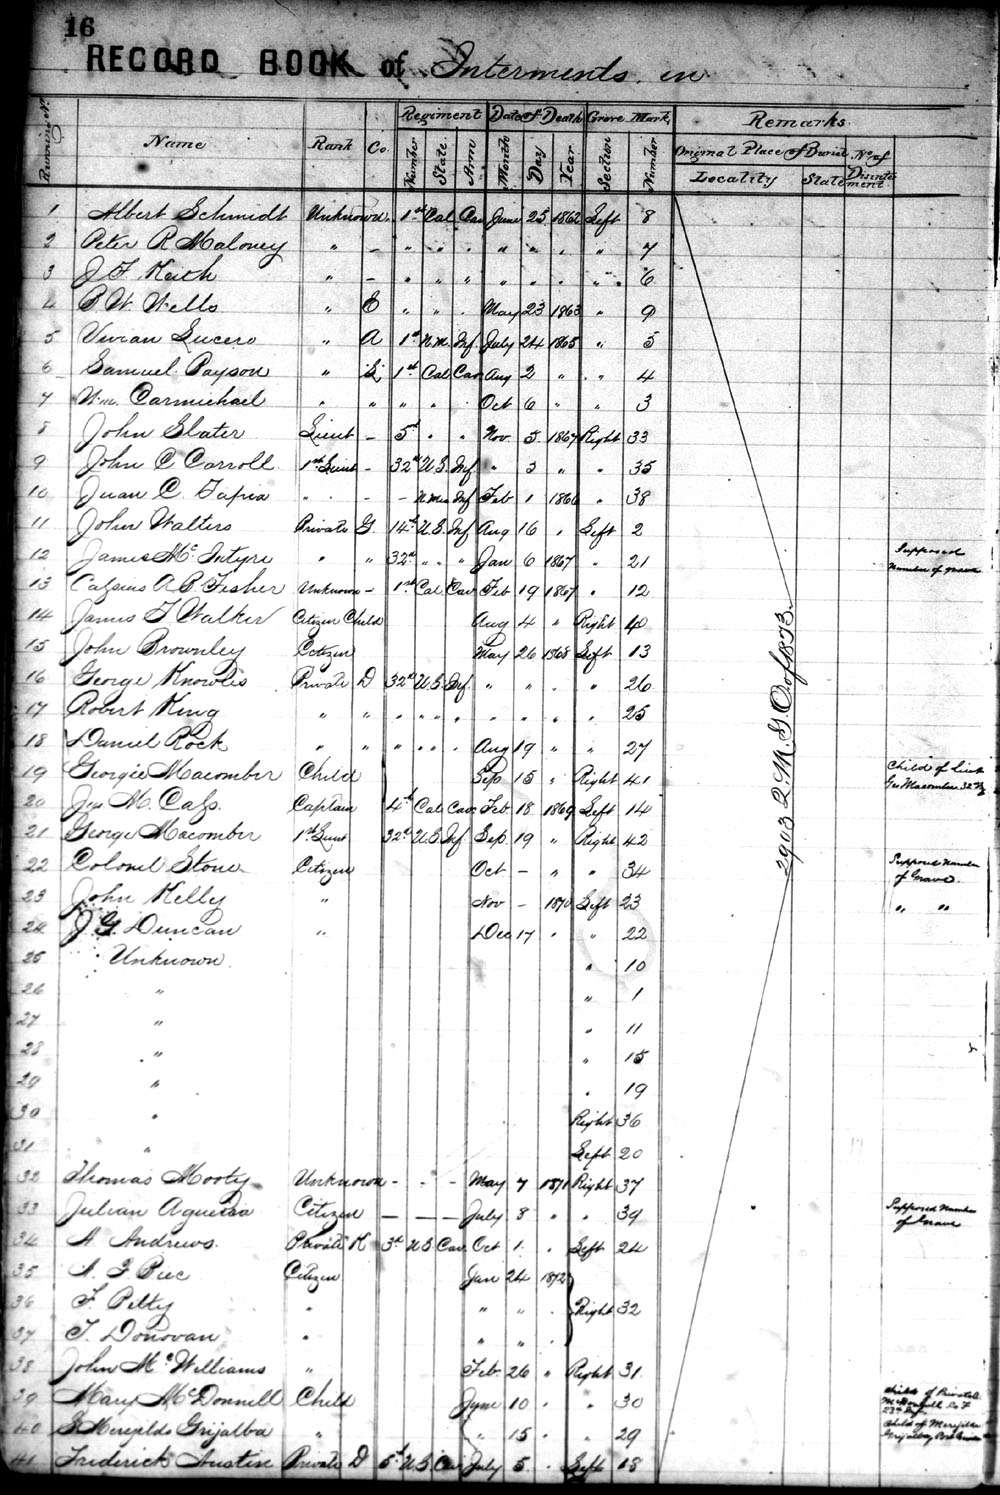 16
RECORD BOOK of Interments in
Regiment Date of Death Grave Mark Remarks
Name Rank Co. Number State Arm Month Day Year Section Number Original Place of Burial No. of
Locality State Disinterment
1 Albert Schmidt Unknown 1st Cal Cav June 25 1862 Left 8
2 Peter R Maloney " - " " " " " " " 7
3 J. F. Keith " - " " " " " " " 6
4 B. W. Wells " E " " " May 23 1863 " 9
5 Vivian Lucero " A 1st N.M. Inf July 24 1865 " 5
6 Samuel Payson " L 1st Cal Cav Aug 2 " " 4
7 Wm. Carmichael " " " " " Oct 6 " " 3
8 John Slater Lieut - 5th " " Nov. 5 1867 Right 33
9 John C Carroll 1st Lieut - 32nd U.S. Inf " 3 " " 35
10 Juan C. Tapia " - - N Mex Inf Feb 1 1866 " 38
11 John Walters Private G. 14th U.S. Inf Aug 16 " Left 2
12 James McIntyre " " 32nd " " Jan 6 1867 " 21 Supposed
Number of grave
13 A P. Fisher Unknown - 1st Cal Cav Feb 19 1867 " 12
14 James T Walker Citizen Child Aug 4 " Right 40
15 John Brownley Citizen May 26 1868 Left 13
16 George Knowles Private D 32nd U.S. Inf " " " " 26
17 Robert King " " " " " " " " " 25
18 Daniel Rock " " " " " Aug 19 " " 27
19 Georgie Macomber Child Sep. 15 " Right 41 Child of Lieut
Geo Macomber 32nd
20 Jas M. Captain 4th Cal Cav Feb. 18 1869 Left 14
21 George Macomber 1st Lieut 32nd U.S Inf Sep. 19 " Right 42
22 Colonel Stone Citizen Oct - " " 34 Supposed Number
of Grave.
23 John Kelley " Nov - 1870 Left 23 " "
24 J. G. Duncan " Dec 17 " " 22
25 Unknown " 10
26 " " 1
27 " " 11
28 " " 15
29 " " 19
30 " Right 36
31 " Left 20
32 Thomas Mooty Unknown - - - May 7 1871 Right 37
33 Julian Aguerra Citizen - - - July 8 " " 39 Supposed Number
of Grave
34 A Andrews. Private K 3rd U.S Cav Oct 1 " Left 24
35 Citizen Jan 24 1872
36 F. Petty " " " " Right 32
37 T. Donovan " " " "
38 John McWilliams " Feb. 26 " Right 31
39 Mary McDonnell Child June 10 " " 30 Child of Private
McDonnell Co F
23rd Inf
40 Grijalba " " 15 " " 29 Child of
Grijalba
41 Frederick Austin Private D 5th U.S Cav July 5 " Left 18
2943 Q. M. G. O. of 1873.